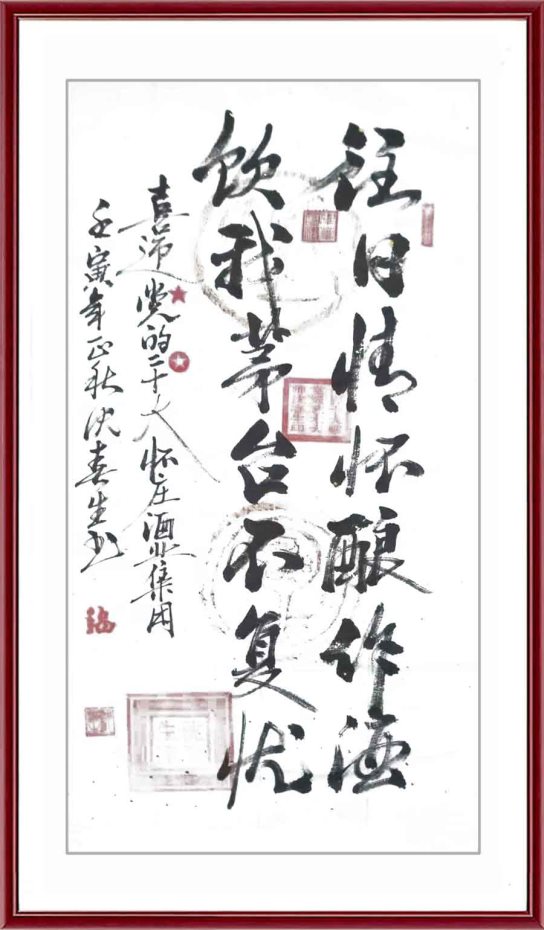 往日情怀酿作酒
饮我茅台不复忧
喜沛党的二十大怀庄酒业集团
壬寅年正秋沈喜生书
福